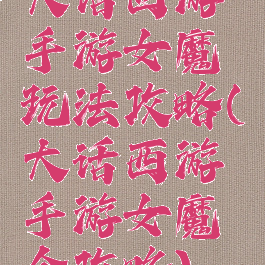 大话西游
手游女魔
玩法攻略(
大话西游
手游女魔
全攻略)